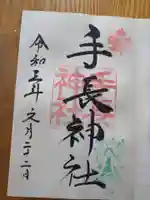 手長神社
令和三年 七月二十二日